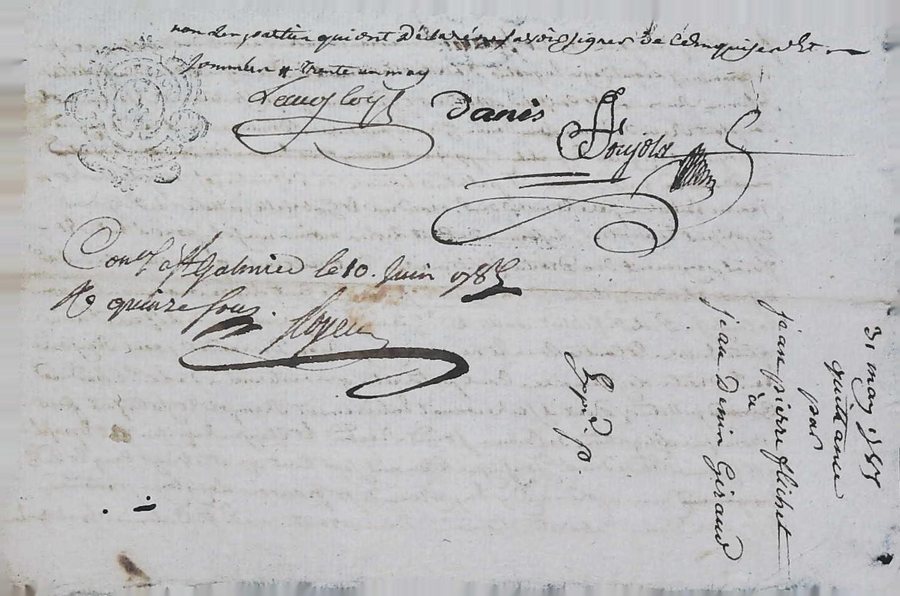 non les parties qui ont déclaré ne savoir signer de ce enquis et
sommées # trente un may
danis
Poujols
Con.lé à St Galmier le 10. Juin 1785
R. quinze sous
31 may 1785
quittance
par
jean pierre flichet
à
jean Denis Giraud
Exp.d p.